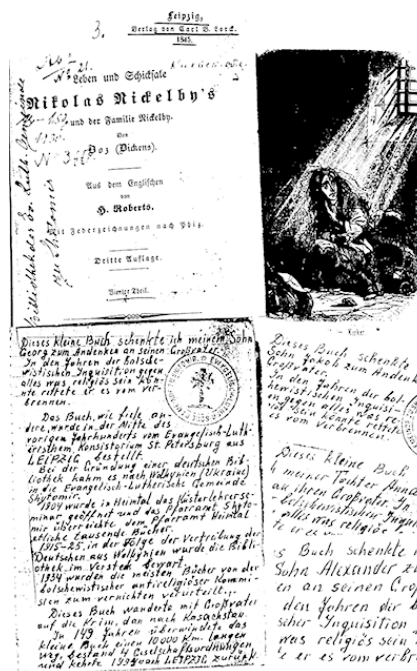 Leipzig,
Verlag von Carl B. Lorck.
1845.
3.
Leben und Schicksale
Nikolas Nickelby's
und der Familie Nickelby.
Von
Boz (Dickens).
Aus dem Englischen
von
H. Roberts.
Mit Federzeichnungen nach Phiz.
Dritte Auflage.
Vierter Theil.
Dieses kleine Buch schenkte ich meinem Sohn
Georg zum Andenken an seinen Großvater.
In den Jahren der bolsche-
wistischen Inquisition gegen
alles was religiös sein könn-
te rettete er es vom ver-
brennen.
Das Buch, wie viele an-
dere, wurde in der Mitte des
vorigen Jahrhunderts vom Evangelisch-Luth-
erischem Konsistorium St. Petersburg aus
LEIPZIG bestellt.
Bei der Gründung einer deutschen Bib-
liothek kahm es nach Wolhynien (Ukraine)
in die Evangelisch-lutherische Gemeinde
Shytomir.
1907 wurde in Heimtal das Küsterlehrerse-
minar geöffnet und das Pfarramt Shyto-
mir überreichte dem Pfarramt Heimtal
etliche tausende Bücher.
1915-25, in der Folge der Vertreibung der
Deutschen aus Wolhynien wurde die Bibli-
othek im Versteck bewart.
1934 wurden die meisten Bücher von der
bolschewistischen antireligiöser Kommis-
sion zum vernichten verurteilt...
Dieses Buch wanderte mit Großvater
auf die Krim, dan nach Kasachstan.
In 149 Jahren überwindet das
kleine Buch einen 10000 Km. langen
Weg, bestand 4 Gesellschaftsordnungen
und kehrte 1994 nach LEIPZIG zurück.
Dieses Buch schenkte
Sohn Jakob zum Andenken
Großvater.
In den Jahren der bol-
schewistischen Inquisi-
on gegen alles was re-
ligiös sein könnte rettete
es vom verbrennen.
Dieses kleine Buch
h meiner Tochter Anna
an ihren Großvater. In
bolschewistischen Inquisi-
alles was religiös
te er es
s Buch schenkte i
Sohn Alexander zu
en an seinen Groß
den Jahren der
scher Inquisition
was religiös sein
e er es vom verbr